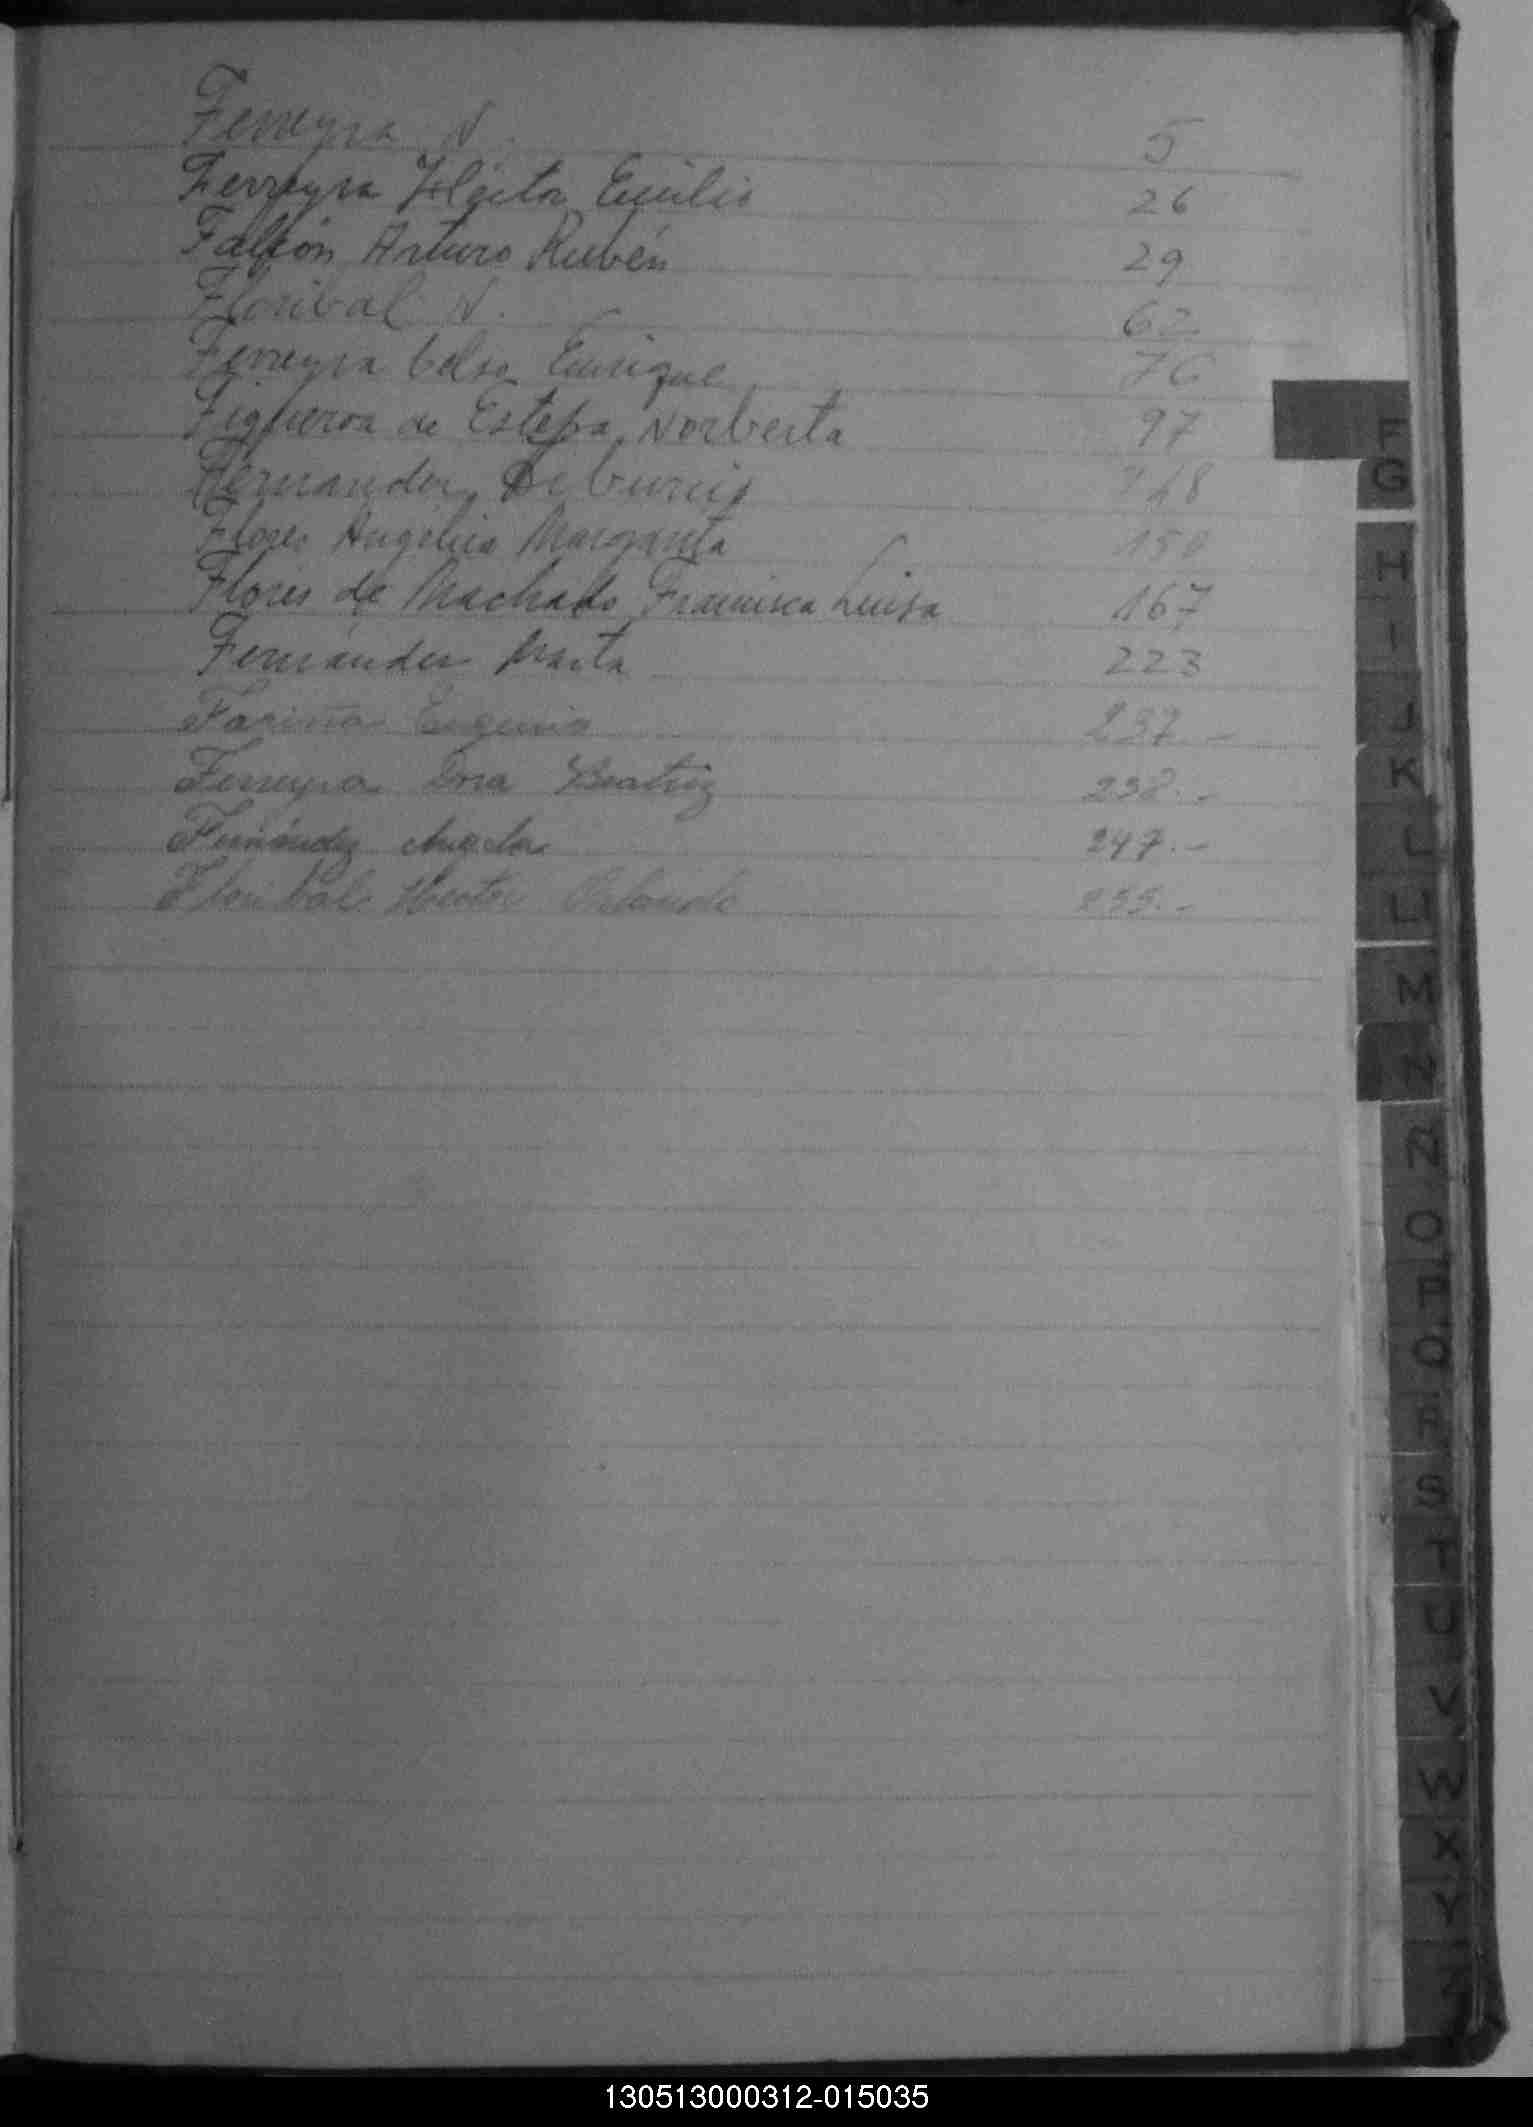 Ferreyra N. 5
Ferreyra Héctor Emilio 26
Falcón Arturo Rubén 29
Floribal N. 62
Ferreyra Celso Enrique 76
Figueroa de Estepa, Norberta 97
Fernandez, 148
Flores Angélica Margarita 150
Flores de Machado, Francisca Luisa 167
Fernández Marta 223
Fariña Eugenia 237.-
Ferreyra Dora Beatriz 238.-
Fernández Angela 247.-
Floribal Hector Orlando 255.-
F
G
H
I
J
K
L
LL
M
N
Ñ
O
P
Q
R
S
T
U
V
W
X
Y
Z
130513000312-015035